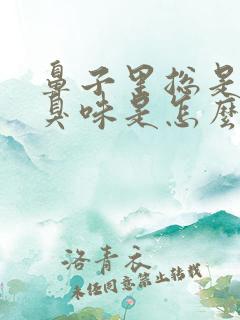 鼻子里总是
臭味是怎麽
洛青衣
未经同意禁止转载